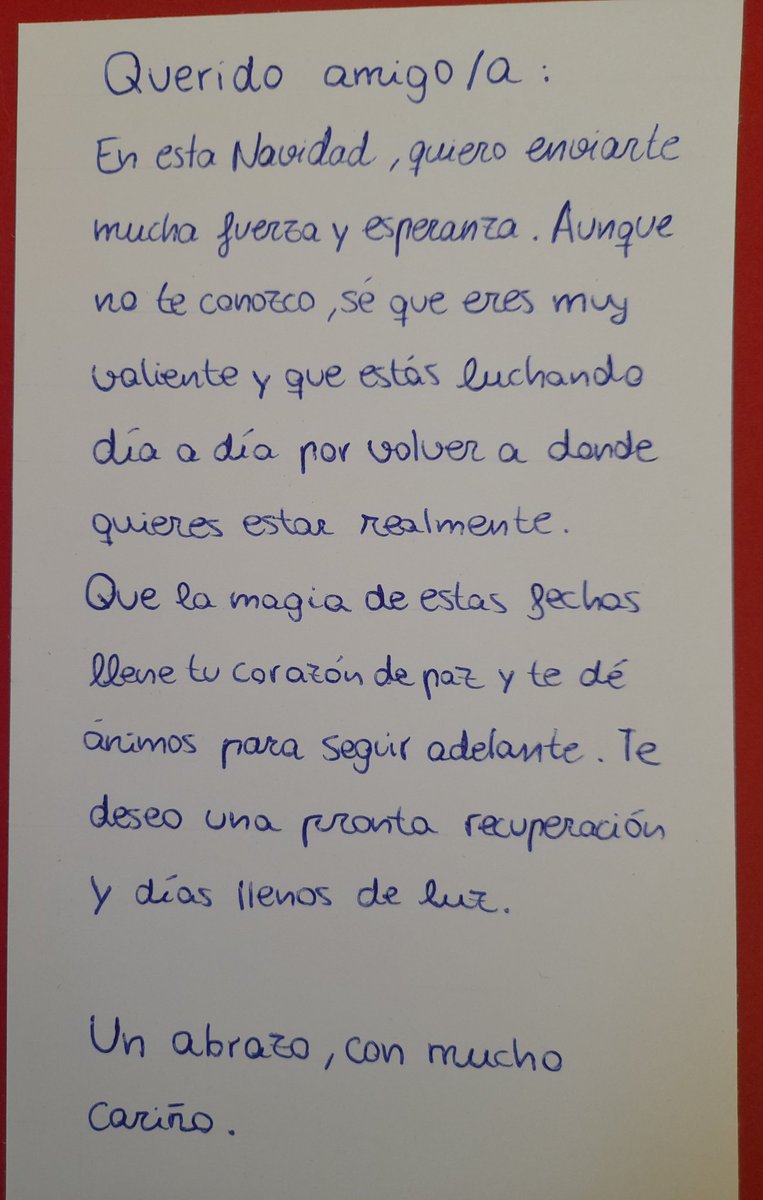 Querido amigo/a:
En esta Navidad, quiero enviarte
mucha fuerza y esperanza. Aunque
no te conozco, sé que eres muy
valiente y que estás luchando
día a día por volver a donde
quieres estar realmente.
Que la magia de estas fechas
llene tu corazón de paz y te dé
ánimos para seguir adelante. Te
deseo una pronta recuperación
y días llenos de luz.
Un abrazo, con mucho
cariño.